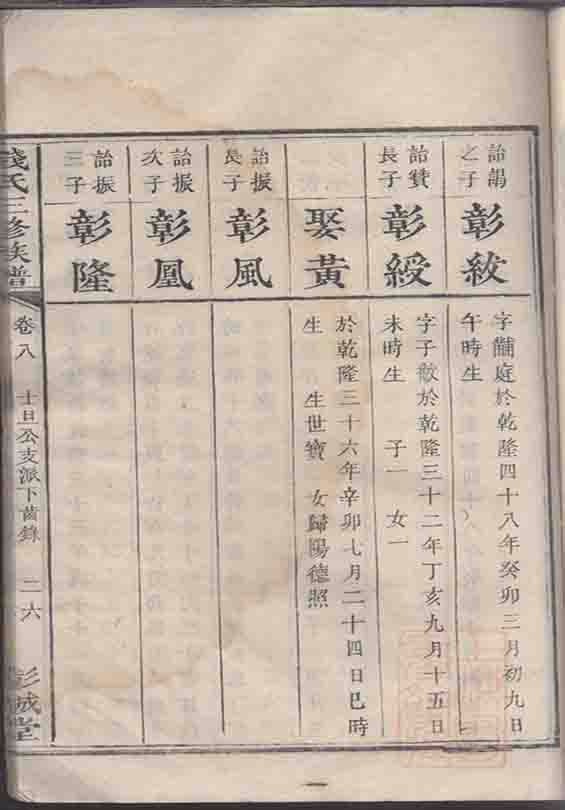 詒謁
之子
彰紱
字黼庭於乾隆四十八年癸卯三月初九日
午時生
詒贊
長子
彰綬
字子徽於乾隆三十二年丁亥九月十五日
未時生 子一 女一
娶黃
於乾隆三十六年辛卯七月二十四日巳時
生 生世寶 女歸陽德照
詒振
長子
彰風
詒振
次子
彰凰
詒振
三子
彰隆
錢氏三修族譜
卷八 士旦公支派下齒錄 二六 彭城堂